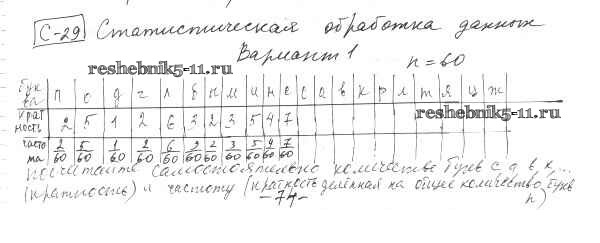 С-29 Статистическая обработка данных
Вариант 1 n = 60
reshebnik5-11.ru
Бук ва П о д г л б ы м и н е с а в к р л т я ц ж
reshebnik5-11.ru
крат ность 2 5 1 2 6 3 2 3 5 4 7
часто та 2/60 5/60 1/60 2/60 6/60 2/60 2/60 3/60 5/60 4/60 7/60
посчитайте самостоятельно количество букв с, а, в, к, ...
(кратность) и частоту (кратность делённая на общее количество букв
n)
- 74 -